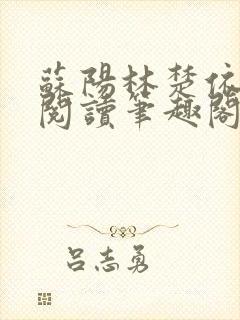 蘇陽林楚依
閱讀筆趣閣
呂志勇